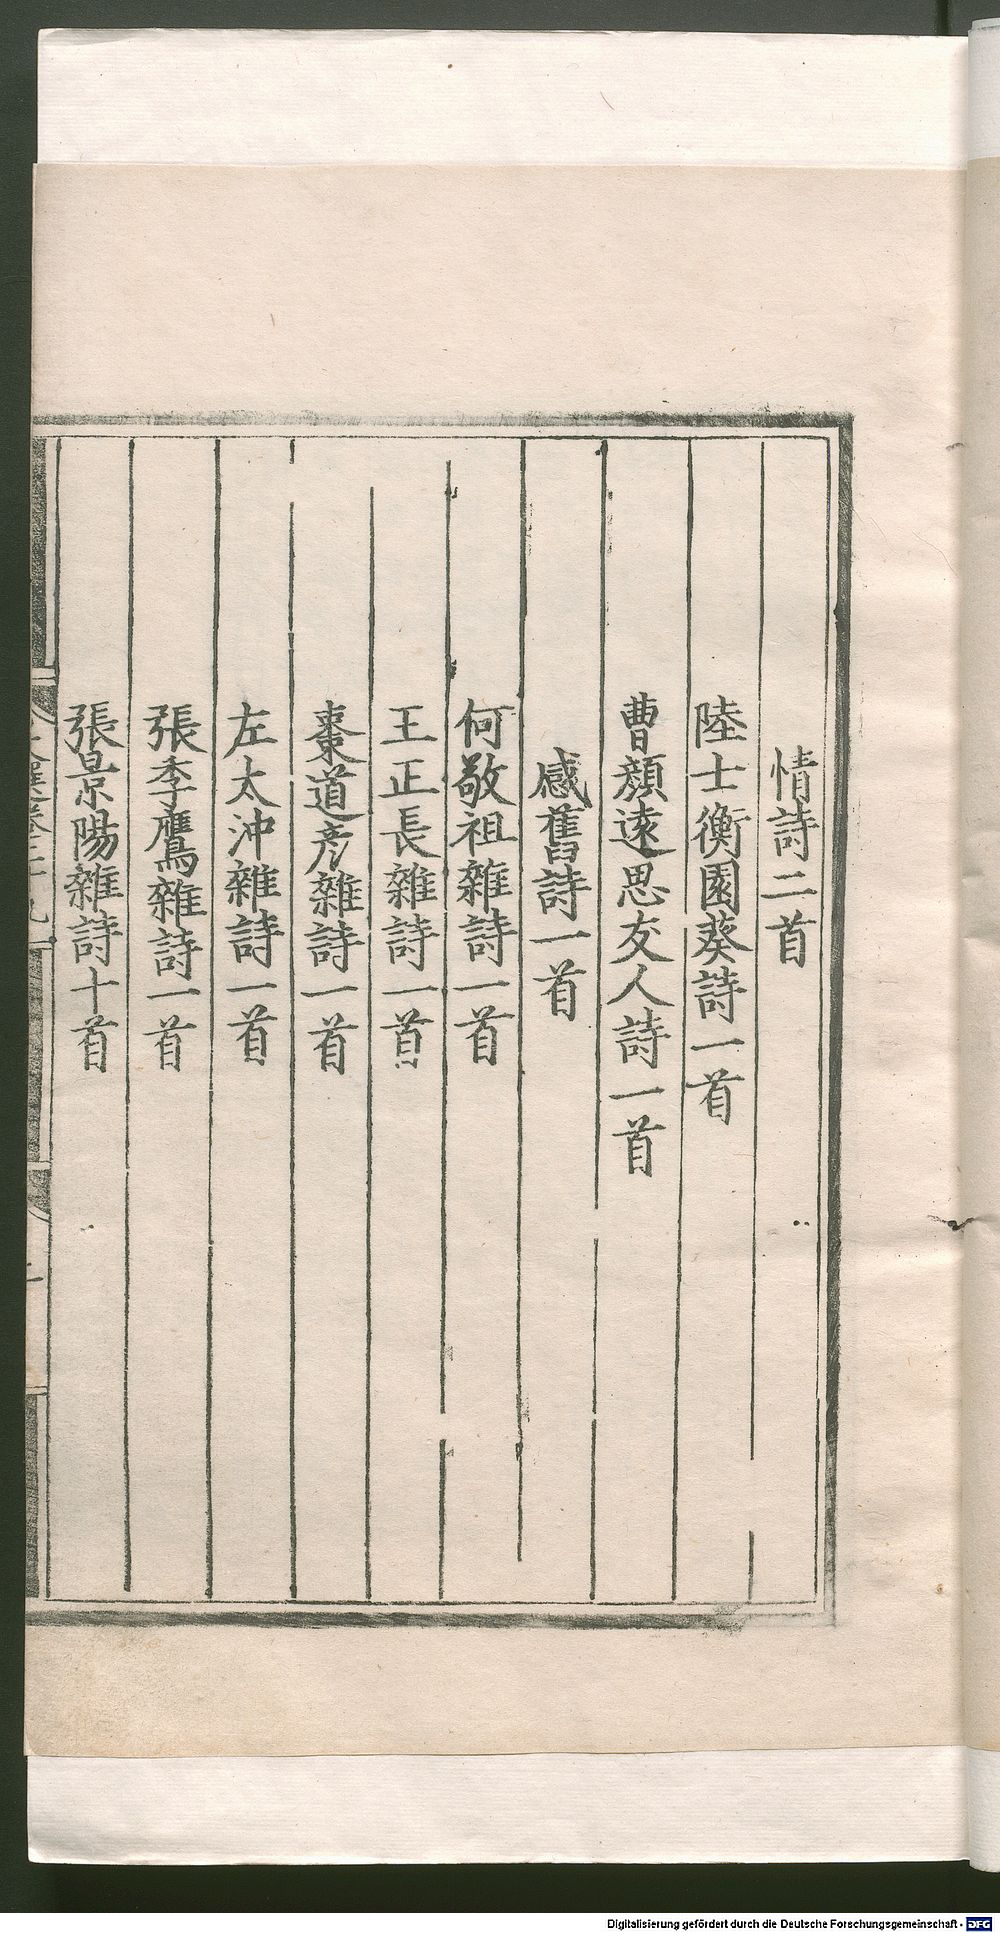 情詩二首
陸士衡園葵詩一首
曹顏遠思友人詩一首
感舊詩一首
何敬祖雜詩一首
王正長雜詩一首
棗道彦雜詩一首
左太沖雜詩一首
張季鷹雜詩一首
張景陽雜詩十首
Digitalisierung gefördert durch die Deutsche Forschungsgemeinschaft - DFG